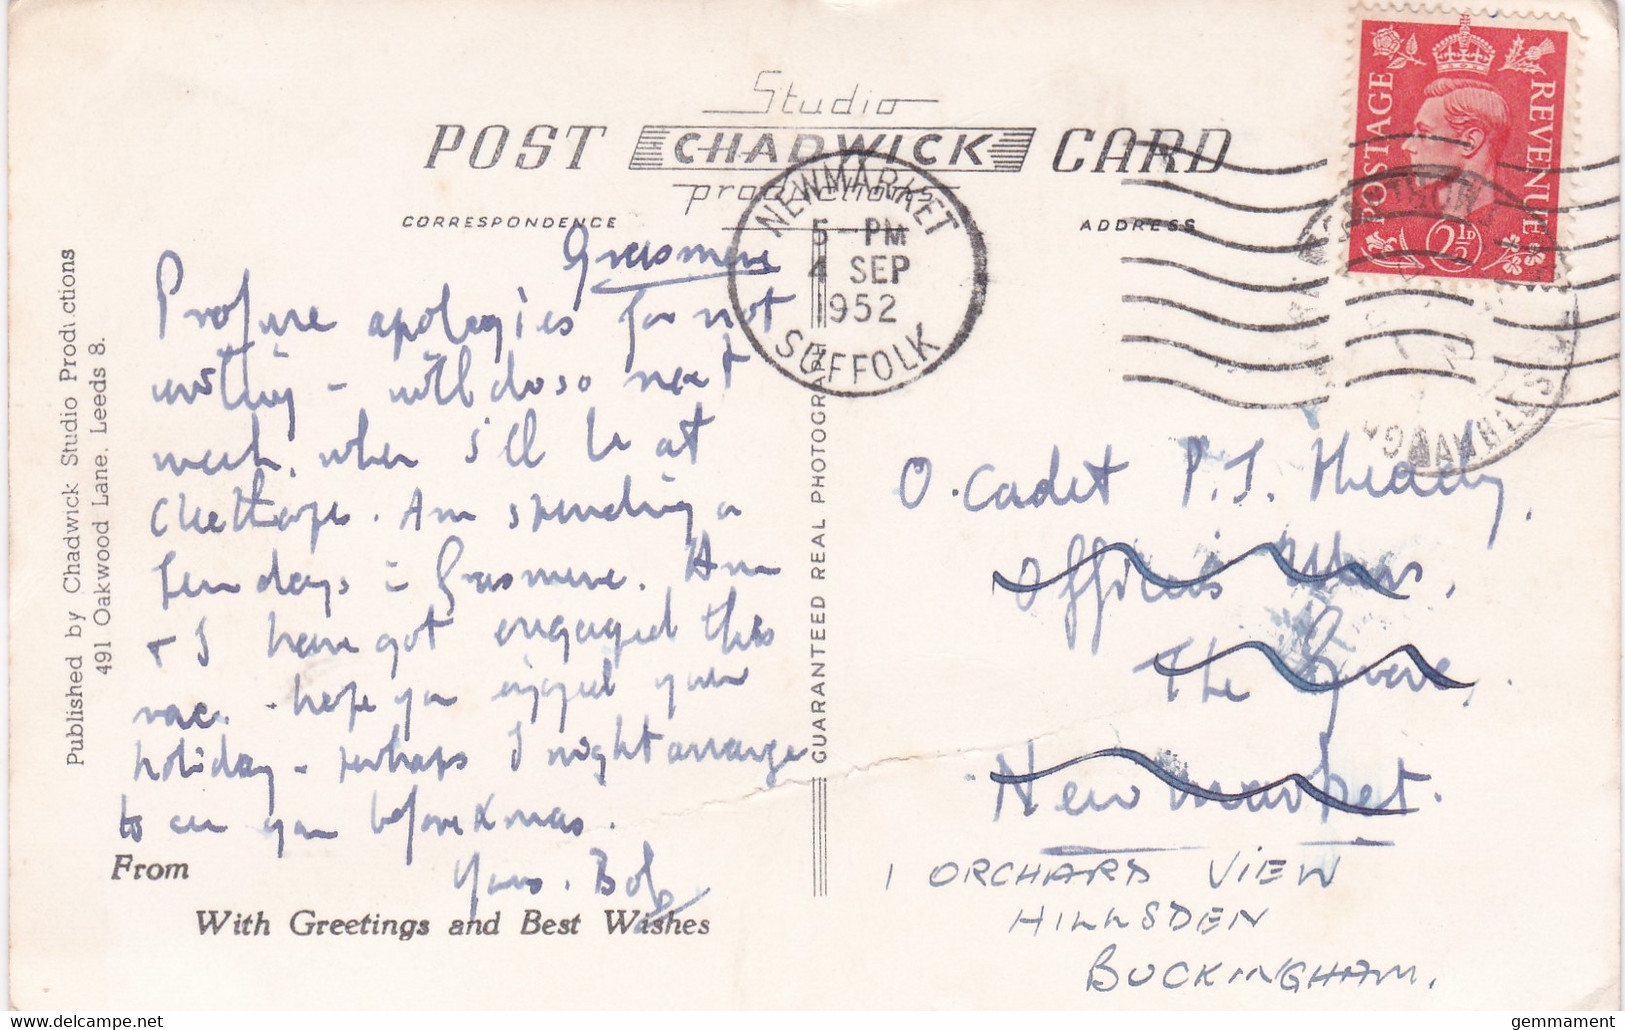 Studio
POST CHADWICK CARD
productions
CORRESPONDENCE
ADDRESS
POSTAGE REVENUE
2½D
NEWMARKET
5 - PM
4 SEP
1952
SUFFOLK
Grasmere
Profuse apologies for not
writing - will do so next
week, when I'll be at
Cleethorpes. Am spending a
few days in Grasmere. Ann
+ I have got engaged this
vac. - hope you enjoyed your
holiday - perhaps I might arrange
to see you before Xmas.
Yours. Bob
From
With Greetings and Best Wishes
Published by Chadwick Studio Productions
491 Oakwood Lane. Leeds 8.
GUARANTEED REAL PHOTOGRAPH
O. Cadet P. J. Heady,
Officers Mess,
The Grove,
Newmarket.
1 ORCHARD VIEW
HILLSDEN
BUCKINGHAM.
delcampe.net
gemmament